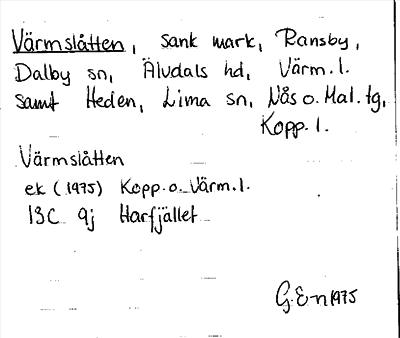 Värmslåtten, sank mark, Ransby,
Dalby sn, Älvdals hd, Värm.l.
samt Heden, Lima sn, Nås o. Mal. tg,
Kopp. l.
Värmslåtten
ek (1975) Kopp. o. Värm. l.
13C 9j Harfjället
G. E-n 1975